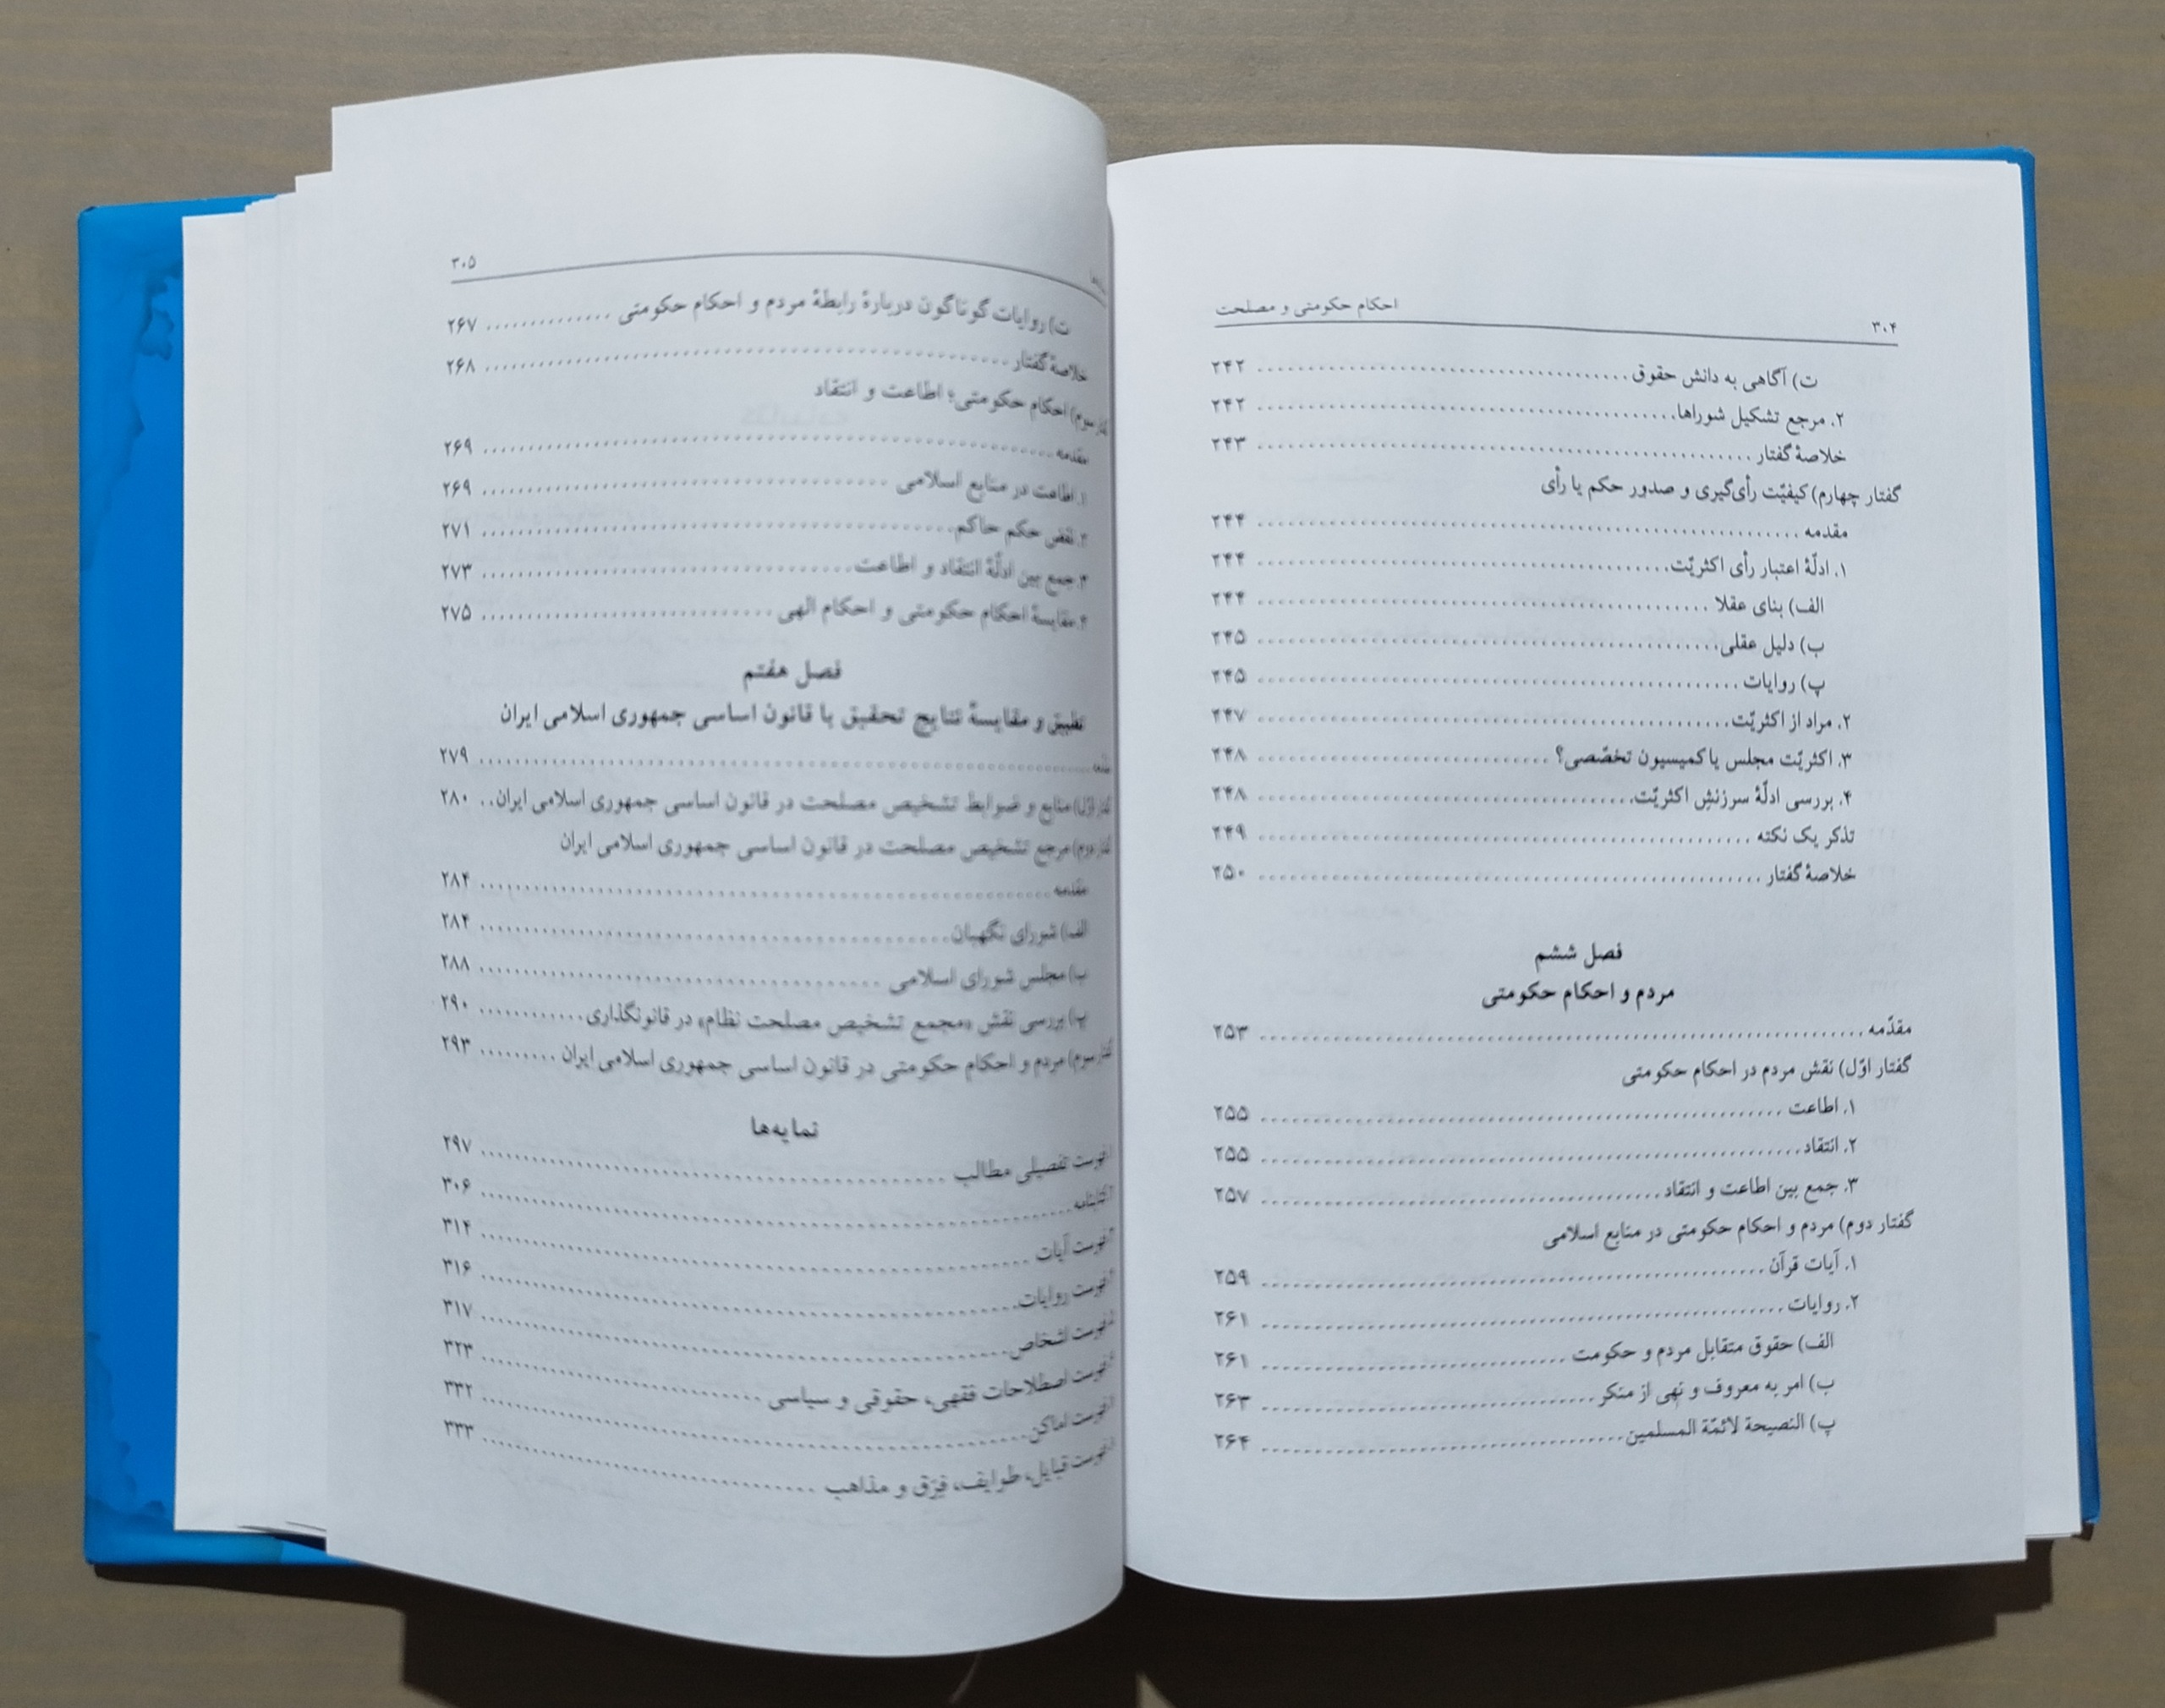 ۳۰۴ احکام حکومتی و مصلحت
ت) آگاهی به دانش حقوق ........ ۲۴۲
۲. مرجع تشکیل شوراها ........ ۲۴۲
خلاصهٔ گفتار ........ ۲۴۳
گفتار چهارم) کیفیّت رأی‌گیری و صدور حکم یا رأی
مقدمه ........ ۲۴۴
۱. ادلّهٔ اعتبار رأی اکثریّت ........ ۲۴۴
الف) بنای عقلا ........ ۲۴۴
ب) دلیل عقلی ........ ۲۴۵
پ) روایات ........ ۲۴۵
۲. مراد از اکثریّت ........ ۲۴۷
۳. اکثریّت مجلس یا کمیسیون تخصّصی؟ ........ ۲۴۸
۴. بررسی ادلّهٔ سرزنش اکثریّت ........ ۲۴۸
تذکر یک نکته ........ ۲۴۹
خلاصهٔ گفتار ........ ۲۵۰
فصل ششم
مردم و احکام حکومتی
مقدّمه ........ ۲۵۳
گفتار اوّل) نقش مردم در احکام حکومتی
۱. اطاعت ........ ۲۵۵
۲. انتقاد ........ ۲۵۵
۳. جمع بین اطاعت و انتقاد ........ ۲۵۷
گفتار دوم) مردم و احکام حکومتی در منابع اسلامی
۱. آیات قرآن ........ ۲۵۹
۲. روایات ........ ۲۶۱
الف) حقوق متقابل مردم و حکومت ........ ۲۶۱
ب) امر به معروف و نهی از منکر ........ ۲۶۳
پ) النصیحة لائمّة المسلمین ........ ۲۶۴
۳۰۵
ت) روایات گوناگون دربارهٔ رابطهٔ مردم و احکام حکومتی ........ ۲۶۷
خلاصهٔ گفتار ........ ۲۶۸
سوم) احکام حکومتی؛ اطاعت و انتقاد
مقدمه ........ ۲۶۹
۱. اطاعت در منابع اسلامی ........ ۲۶۹
۲. نقض حکم حاکم ........ ۲۷۱
۳. جمع بین ادلّهٔ انتقاد و اطاعت ........ ۲۷۳
۴. مقایسهٔ احکام حکومتی و احکام الهی ........ ۲۷۵
فصل هفتم
تطبیق و مقایسهٔ نتایج تحقیق با قانون اساسی جمهوری اسلامی ایران
........ ۲۷۹
اوّل) منابع و ضوابط تشخیص مصلحت در قانون اساسی جمهوری اسلامی ایران .. ۲۸۰
دوم) مرجع تشخیص مصلحت در قانون اساسی جمهوری اسلامی ایران
مقدمه ........ ۲۸۴
الف) شورای نگهبان ........ ۲۸۴
ب) مجلس شورای اسلامی ........ ۲۸۸
پ) بررسی نقش «مجمع تشخیص مصلحت نظام» در قانونگذاری ........ ۲۹۰
سوم) مردم و احکام حکومتی در قانون اساسی جمهوری اسلامی ایران ........ ۲۹۳
نمایه‌ها
فهرست تفصیلی مطالب ........ ۲۹۷
کتابنامه ........ ۳۰۶
فهرست آیات ........ ۳۱۴
فهرست روایات ........ ۳۱۶
فهرست اشخاص ........ ۳۱۷
فهرست اصطلاحات فقهی، حقوقی و سیاسی ........ ۳۲۳
فهرست اماکن ........ ۳۳۲
فهرست قبایل، طوایف، فِرَق و مذاهب ........ ۳۳۳